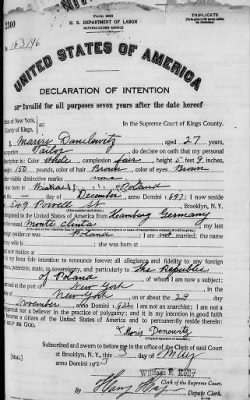 2200
Form 2203
TRIPLICATE
U. S. DEPARTMENT OF LABOR
NATURALIZATION SERVICE
No. 163196
UNITED STATES OF AMERICA
DECLARATION OF INTENTION
Invalid for all purposes seven years after the date hereof
of New York,
County of Kings,
In the Supreme Court of Kings County.
I, Danilowitz, aged 27 years,
occupation Tailor, do declare on oath that my personal
description is: Color White, complexion fair, height 5 feet 9 inches,
weight 150 pounds, color of hair Brown, color of eyes Brown
other visible distinctive marks
I was born in Poland
on the day of December, anno Domini 1897; I now reside
at 549 Powell St., Brooklyn, N.Y.
I emigrated to the United States of America from Hamburg Germany
on the vessel Monte
last foreign residence was Poland; I am not married; the name
of my is; she was born at
It is my bona fide intention to renounce forever all allegiance and fidelity to any foreign
prince, potentate, state, or sovereignty, and particularly to The Republic
of Poland, of whom I am now a subject;
I arrived at the port of New York, in the
State of New York, on or about the 29 day
of November, anno Domini; I am not an anarchist; I am not a
polygamist nor a believer in the practice of polygamy; and it is my intention in good faith
to become a citizen of the United States of America and to permanently reside therein:
SO HELP ME GOD.
Subscribed and sworn to before me in the office of the Clerk of said Court
at Brooklyn, N.Y., this 3 day of May
anno Domini
William E. Kelly
Clerk of the Supreme Court.
By, Deputy Clerk.